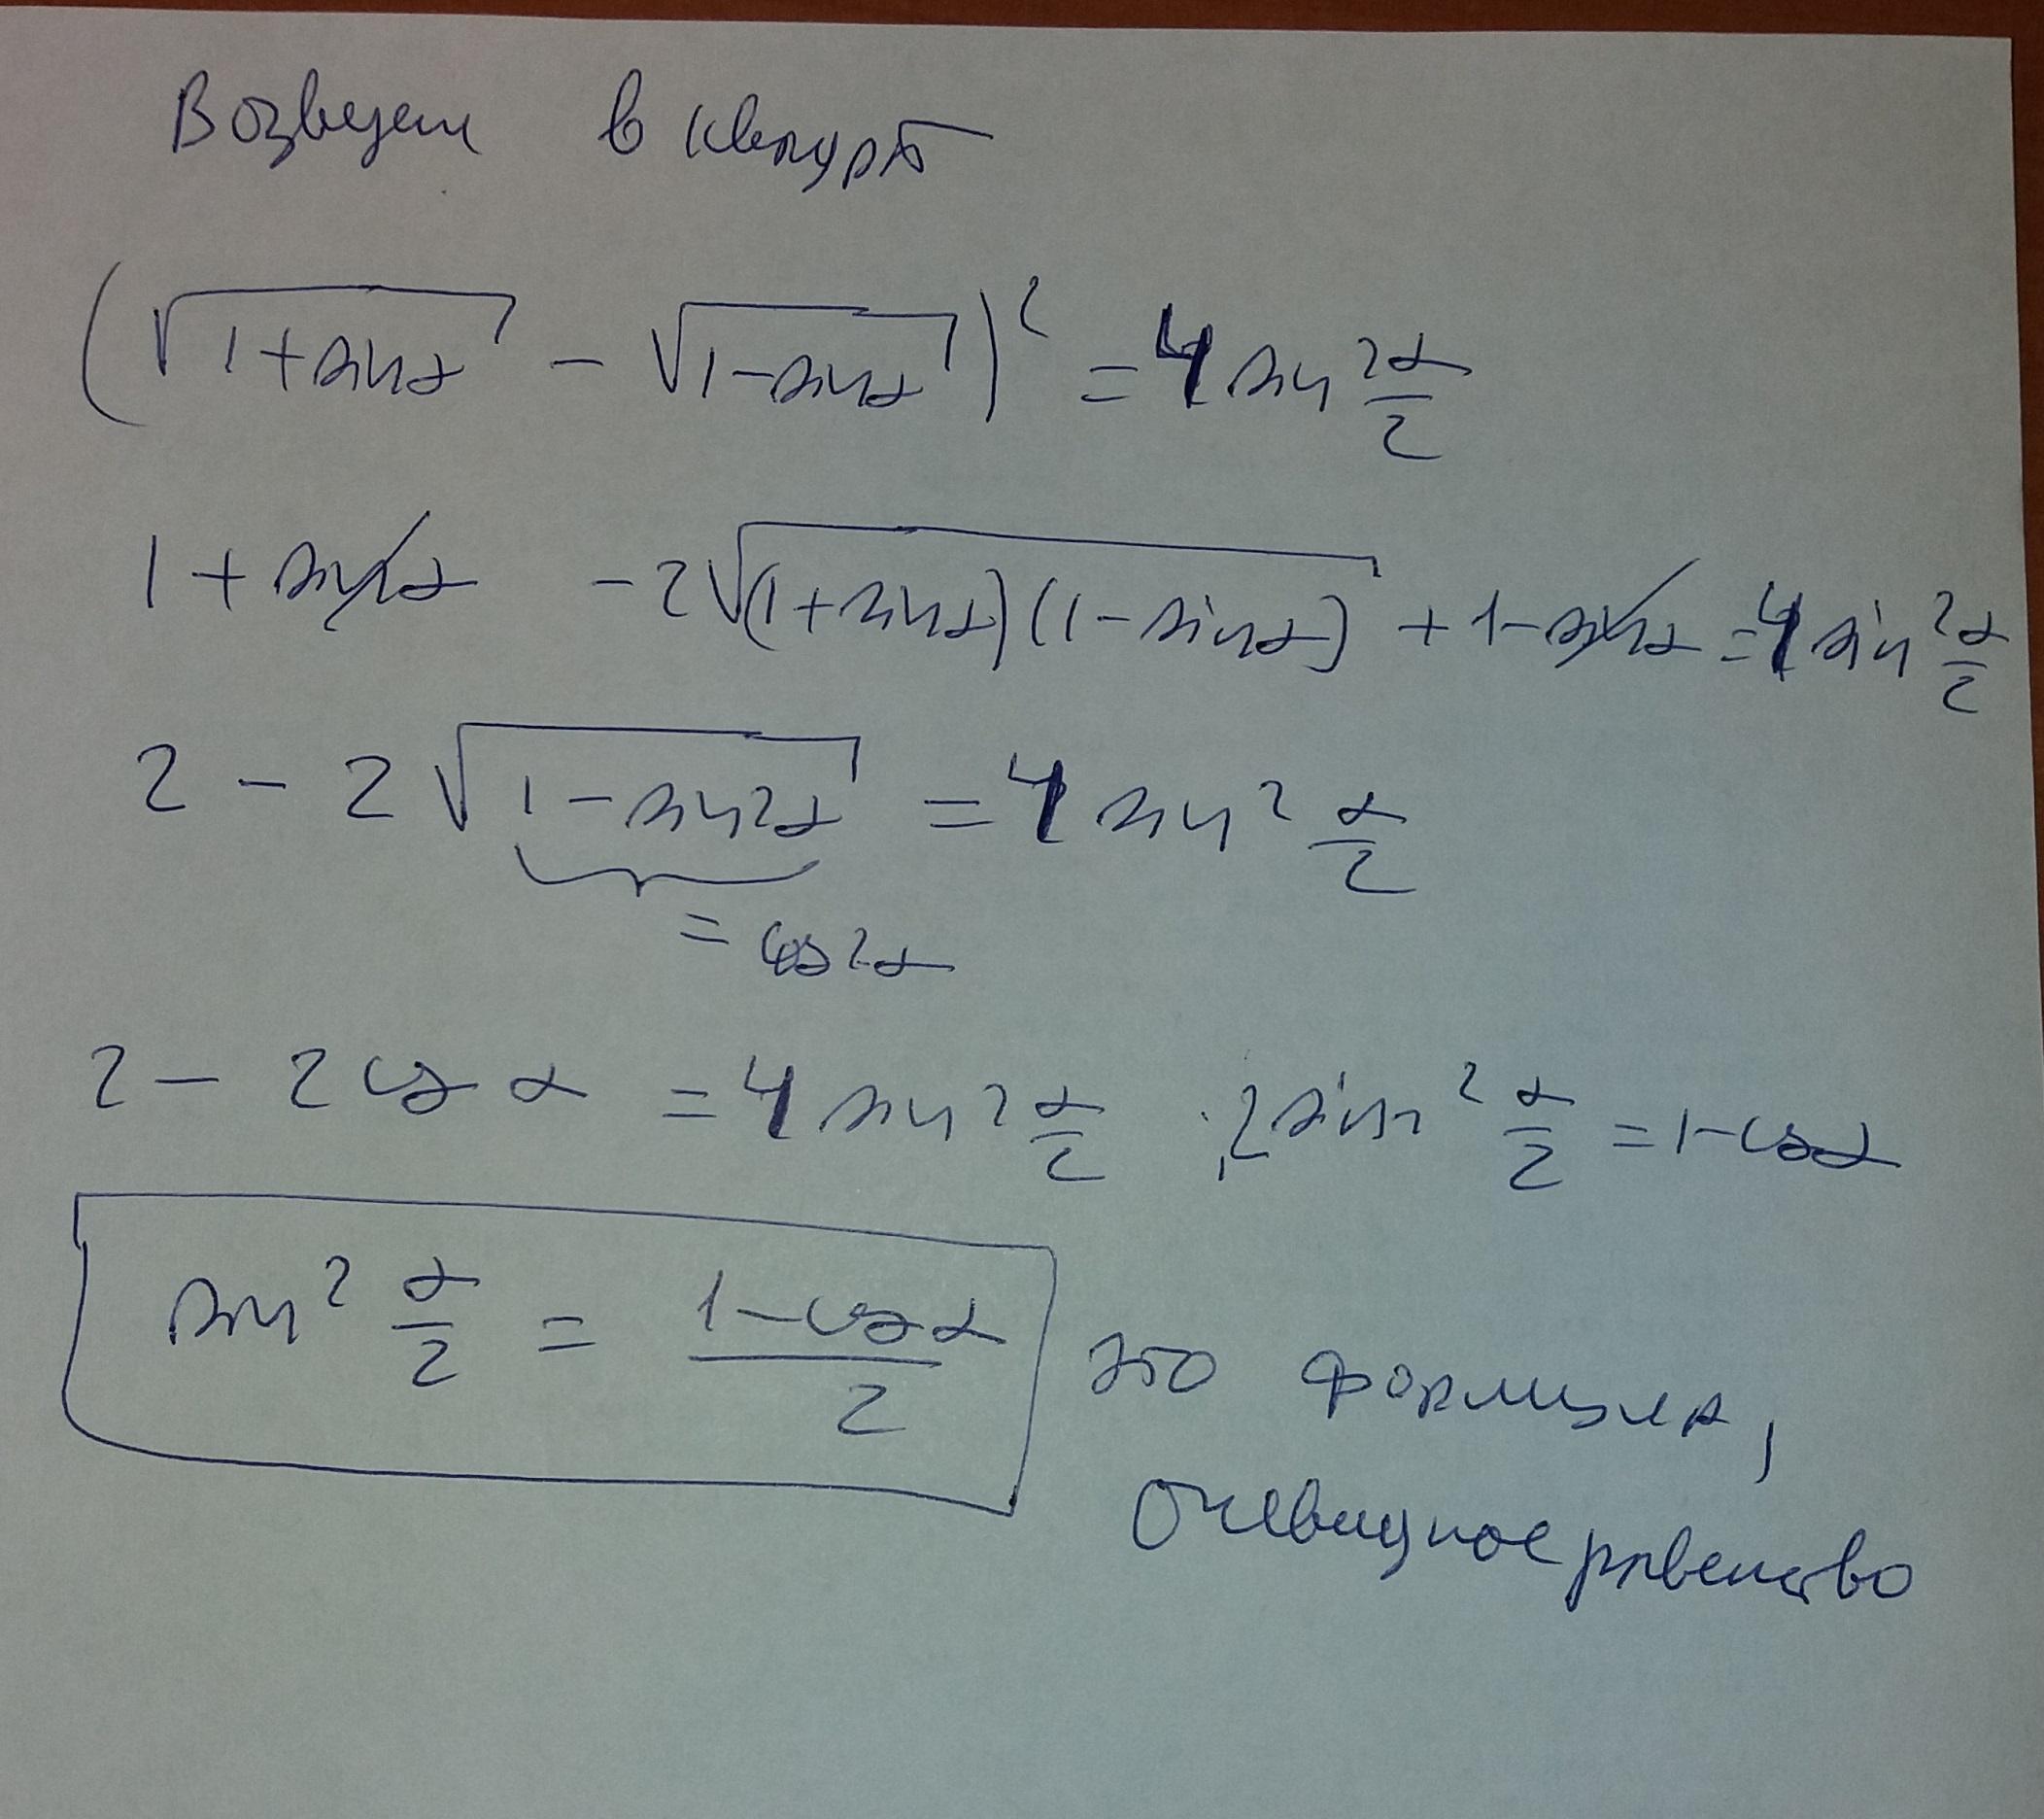 Возведем в квадрат
(√(1+sinα) - √(1-sinα))² = 4 sin² α/2
1 + sinα - 2√((1+sinα)(1-sinα)) + 1 - sinα = 4 sin² α/2
2 - 2√(1 - sin²α) = 4 sin² α/2
= cos²α
2 - 2 cos α = 4 sin² α/2 ; 2 sin² α/2 = 1 - cosα
sin² α/2 = (1 - cosα)/2 это формула,
очевидное равенство